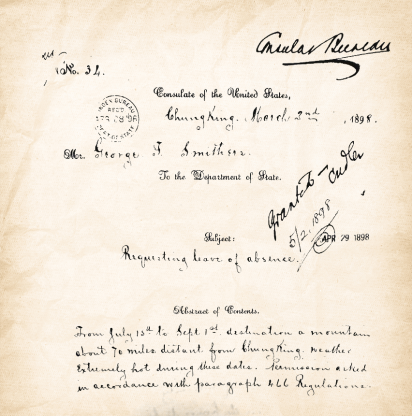 Consular Bureau
No. 34.
Consulate of the United States,
INDEX BUREAU
REC'D
DEP'T OF STATE
ChungKing. March 2nd, 1898.
Mr. George F. Smithers.
To the Department of State.
Granted—
5/2, 1898
APR 29 1898
Subject:
Requesting leave of absence.
Abstract of Contents.
From July 15th to Sept 1st destination a mountain
about 70 miles distant from ChungKing. weather
Extremely hot during these dates. Permission asked
in accordance with paragraph 466 Regulations.